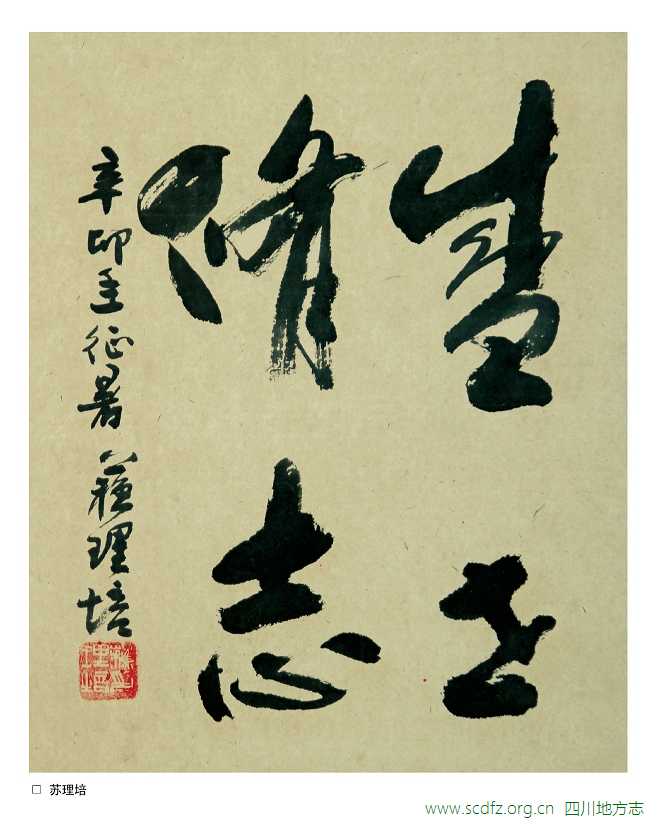 盛世
修志
辛卯年征暑 蘇理培
□ 苏理培
www.scdfz.org.cn 四川地方志